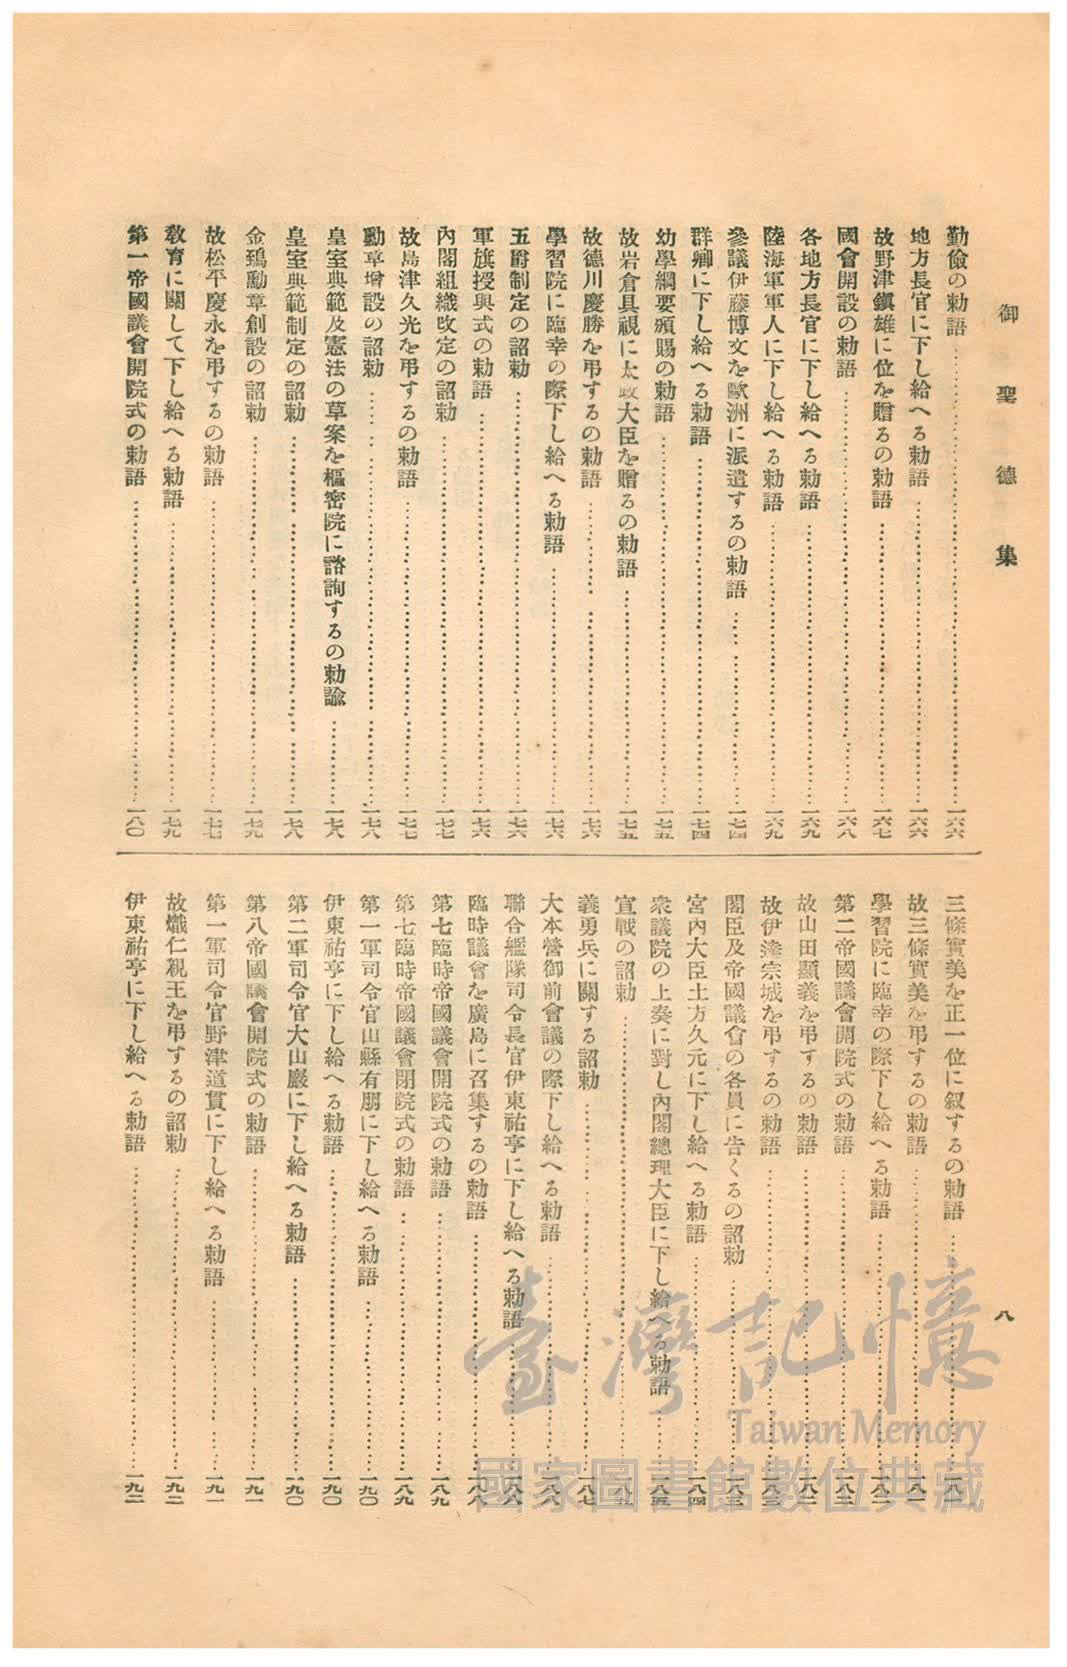 御聖德集
八
勤儉の勅語……一六六
地方長官に下し給へる勅語……一六六
故野津鎭雄に位を贈るの勅語……一六七
國會開設の勅語……一六八
各地方長官に下し給へる勅語……一六九
陸海軍軍人に下し給へる勅語……一六九
參議伊藤博文を歐洲に派遣するの勅語……一七四
群卿に下し給へる勅語……一七四
幼學綱要頒賜の勅語……一七五
故岩倉具視に太政大臣を贈るの勅語……一七五
故德川慶勝を弔するの勅語……一七六
學習院に臨幸の際下し給へる勅語……一七六
五爵制定の詔勅……一七六
軍旗授與式の勅語……一七六
內閣組織改定の詔勅……一七七
故島津久光を弔するの勅語……一七七
勳章增設の詔勅……一七八
皇室典範及憲法の草案を樞密院に諮詢するの勅諭……一七八
皇室典範制定の詔勅……一七八
金鵄勳章創設の詔勅……一七九
故松平慶永を弔するの勅語……一七七
敎育に關して下し給へる勅語……一七九
第一帝國議會開院式の勅語……一八〇
三條實美を正一位に叙するの勅語……一八一
故三條實美を弔するの勅語……一八一
學習院に臨幸の際下し給へる勅語……一八二
第二帝國議會開院式の勅語……一八二
故山田顯義を弔するの勅語……一八二
故伊達宗城を弔するの勅語……一八三
閣臣及帝國議會の各員に告ぐるの詔勅……一八三
宮內大臣土方久元に下し給へる勅語……一八四
衆議院の上奏に對し內閣總理大臣に下し給へる勅語……一八五
宣戰の詔勅……
義勇兵に關する詔勅……一八七
大本營御前會議の際下し給へる勅語……一八八
聯合艦隊司令長官伊東祐亨に下し給へる勅語……一八八
臨時議會を廣島に召集するの勅語……一八八
第七臨時帝國議會開院式の勅語……一八九
第七臨時帝國議會閉院式の勅語……一八九
第一軍司令官山縣有朋に下し給へる勅語……一九〇
伊東祐亨に下し給へる勅語……一九〇
第二軍司令官大山巖に下し給へる勅語……一九〇
第八帝國議會開院式の勅語……一九一
第一軍司令官野津道貫に下し給へる勅語……一九一
故熾仁親王を弔するの詔勅……一九二
伊東祐亨に下し給へる勅語……一九二
臺灣記憶
Taiwan Memory
國家圖書館數位典藏